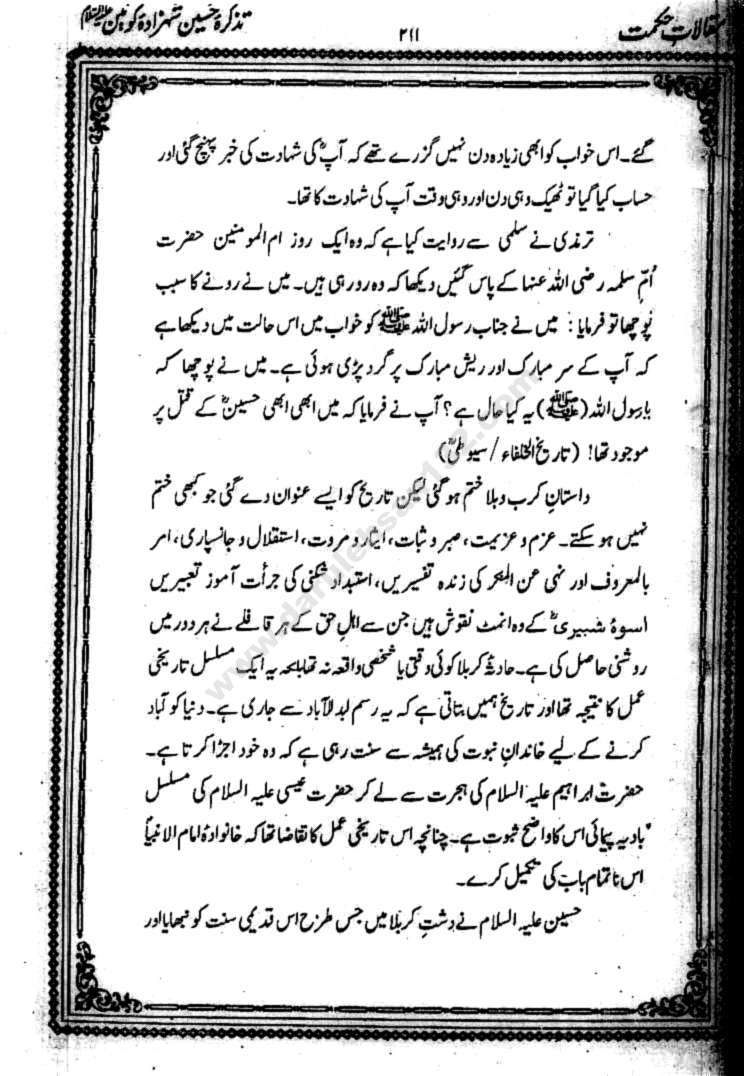 مقالاتِ حکمت
۲۱۱
تذکرۂ حسین شہزادۂ کونین علیہ السلام
گئے۔ اس خواب کو ابھی زیادہ دن نہیں گزرے تھے کہ آپؓ کی شہادت کی خبر پہنچ گئی اور
حساب کیا گیا تو ٹھیک وہی دن اور وہی وقت آپ کی شہادت کا تھا۔
ترمذی نے سلمی سے روایت کیا ہے کہ وہ ایک روز ام المومنین حضرت
اُمِّ سلمہ رضی اللہ عنہا کے پاس گئیں دیکھا کہ وہ رو رہی ہیں۔ میں نے رونے کا سبب
پوچھا تو فرمایا: میں نے جناب رسول اللہ ﷺ کو خواب میں اس حالت میں دیکھا ہے
کہ آپ کے سر مبارک اور ریش مبارک پر گرد پڑی ہوئی ہے۔ میں نے پوچھا کہ
یا رسول اللہ (ﷺ) یہ کیا حال ہے؟ آپ نے فرمایا کہ میں ابھی ابھی حسینؓ کے قتل پر
موجود تھا! (تاریخ الخلفاء / سیوطیؒ)
داستانِ کرب و بلا ختم ہو گئی لیکن تاریخ کو ایسے عنوان دے گئی جو کبھی ختم
نہیں ہو سکتے۔ عزم و عزیمت، صبر و ثبات، ایثار و مروت، استقلال و جانسپاری، امر
بالمعروف اور نہی عن المنکر کی زندہ تفسیریں، استبداد شکنی کی جرأت آموز تعبیریں
اسوۂ شبیریؓ کے وہ انمٹ نقوش ہیں جن سے اہلِ حق کے ہر قافلے نے ہر دور میں
روشنی حاصل کی ہے۔ حادثۂ کربلا کوئی وقتی یا شخصی واقعہ نہ تھا بلکہ یہ ایک مسلسل تاریخی
عمل کا نتیجہ تھا اور تاریخ ہمیں بتاتی ہے کہ یہ رسم ابدالآباد سے جاری ہے۔ دنیا کو آباد
کرنے کے لیے خاندانِ نبوت کی ہمیشہ سے سنت رہی ہے کہ وہ خود اجڑا کرتا ہے۔
حضرت ابراہیم علیہ السلام کی ہجرت سے لے کر حضرت عیسی علیہ السلام کی مسلسل
بادیہ پیمائی اس کا واضح ثبوت ہے۔ چنانچہ اس تاریخی عمل کا تقاضا تھا کہ خانوادۂ امام الانبیاؐ
اس ناتمام باب کی تکمیل کرے۔
حسین علیہ السلام نے دشتِ کربلا میں جس طرح اس قدیمی سنت کو نبھایا اور